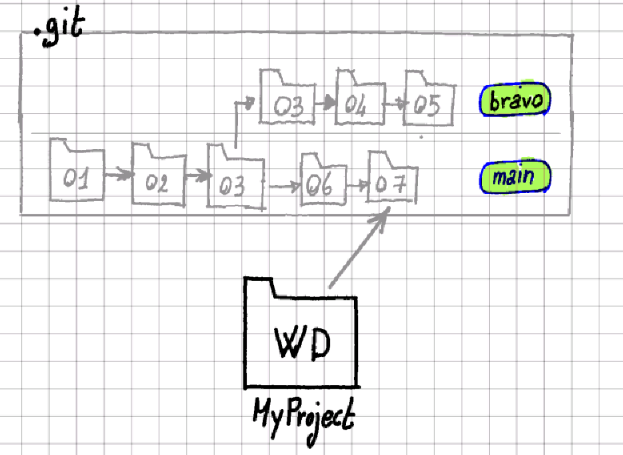 .git
03 04 05 bravo
01 02 03 06 07 main
WD
MyProject